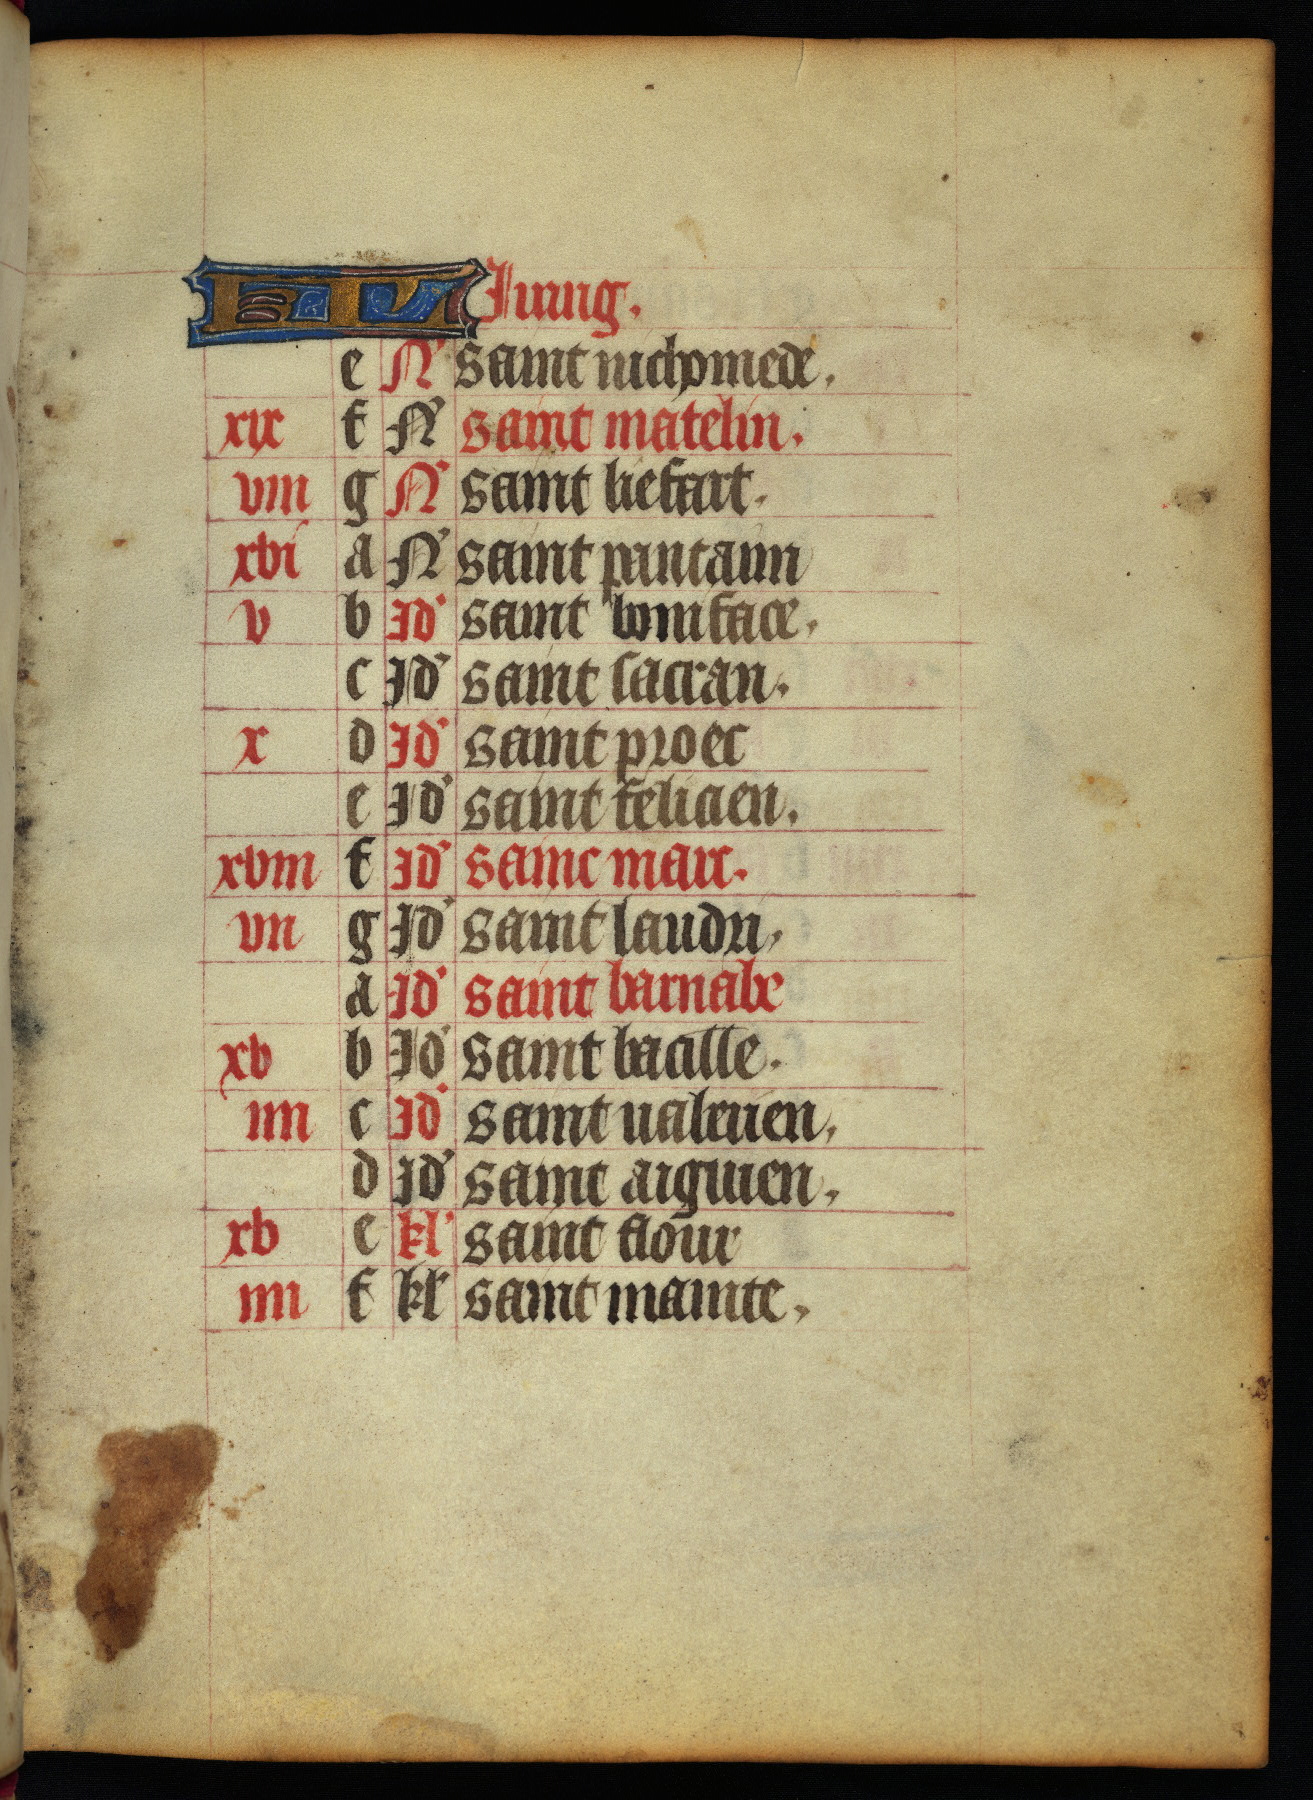 KL Juing.
e N' saint nichomede.
xix f N' saint matelin.
viii g N' saint liefart.
xvi a N' saint pantaim
v b Id' saint boniface.
c Id' saint sacran.
x d Id' saint proet
e Id' saint felicien.
xviii f Id' sainc marc.
vii g Id' saint laudri.
a Id' saint barnabe
xv b Id' saint bacille.
iiii c Id' saint valerien.
d Id' saint aignien.
xv e kl' saint flour
iiii f kl' saint mainte.